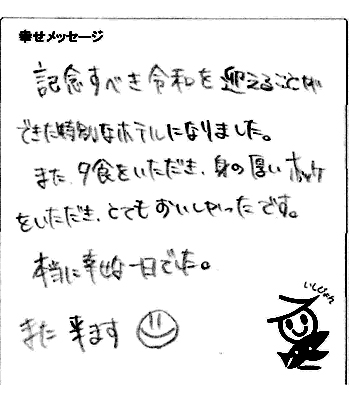 幸せメッセージ
記念すべき令和を迎えることが
できた特別なホテルになりました。
また、夕食をいただき、身の厚いホッケ
をいただき、とてもおいしかったです。
本当に幸せな一日でした。
また 来ます